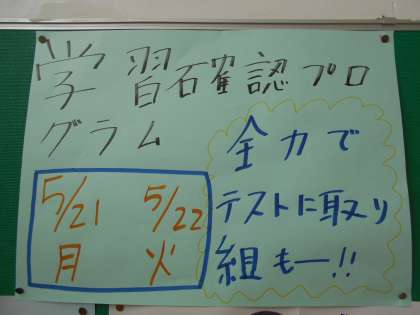 学習確認プロ
グラム
全力で
テストに取り
組もー!!
5/21 5/22
月 火